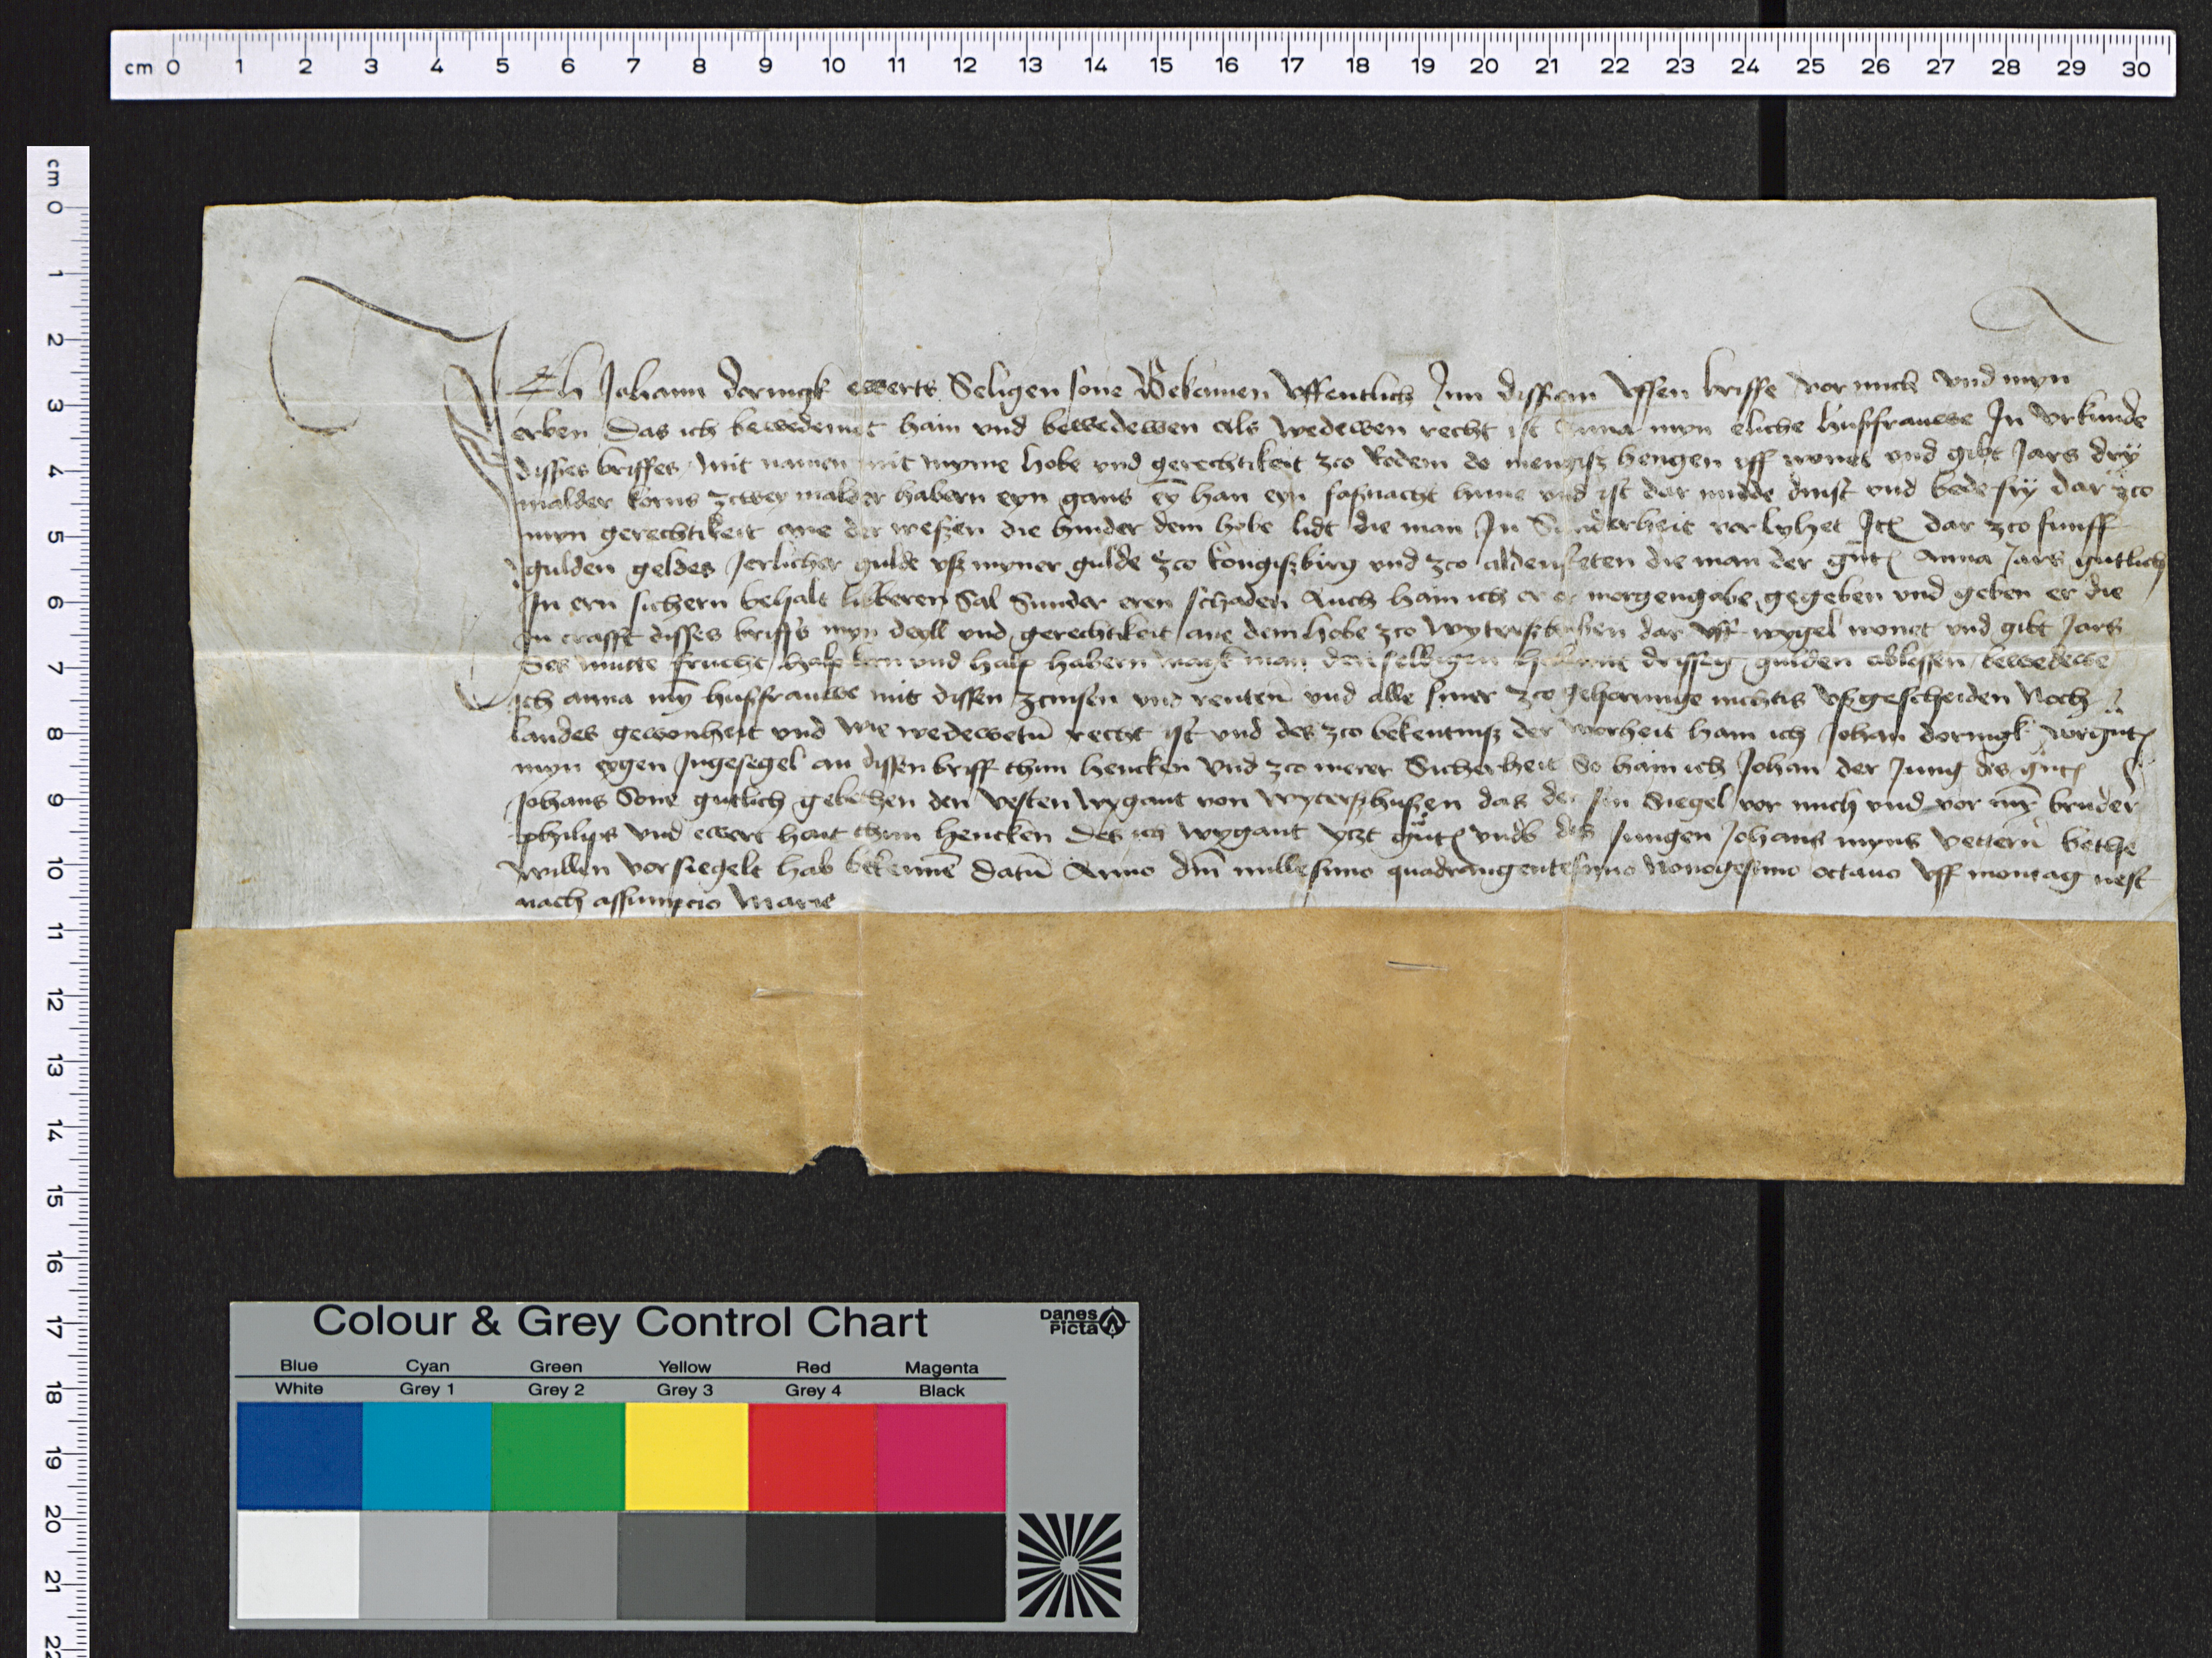 cm 0 1 2 3 4 5 6 7 8 9 10 11 12 13 14 15 16 17 18 19 20 21 22 23 24 25 26 27 28 29 30
cm 0 1 2 3 4 5 6 7 8 9 10 11 12 13 14 15 16 17 18 19 20 21 22
Ich Johann doringk ewerts Seligen sone Bekennen uffentlich Inn dissem uffen briffe vor mich und myn
erben Das ich bewedemet hain und bewedewen als wedewen recht ist Anna myn eliche husfrauwe In urkunde
disses briffes mit namen mit myme hobe und gerechtikeit zco Rodem do mengisz hengen uff wonet und gibt Jars dry
malder korns zcwey malder habern eyn gans ey han eyn fasnacht hune und ist dar midde dinst und bede fry dar zco
myn gerechtikeit ane der weszen die hinder dem hobe lidt die man In Sunderheit vor lyhet Ite dar zco funff
gulden geldes Jerlicher gulde usz myner gulde zco konigiszbirg und zco aldensteten die man der gnt Anna Jars gutlich
In ern sichern behalt libberen sal Sunder eren schaden Auch hain ich er er morgengabe gegeben und geben er die
In crafft disses briffs myn deyll und gerechtikeit ane dem hobe zco wyterszhuszen dar uff wygel wonet und gibt Jars
Ses mutte frucht halp korn und halp habern magk man den selbigen hob mit drissig gulden ablossen bewedewe
ich anna my husfrauwe mit dissen zcinsen und renten und alle siner zco gehorunge nichtis uszgescheiden Noch
landes gewonheit und wie wedewetu recht ist und des zco bekentnisz der worheit hain ich Johan doringk vorgnt
myn eygen Ingesegel an dissen briff thun hencken Und zco merer Sicherheit So hain ich Johan der Jung des gnt
Johans Sone gutlich gebethen den vesten wygant von wyterszhuszen das der sin Siegel vor mich und vor my bruder
philips und ewert hait thun hencken Des ich wygant ytzt gnt umb des Jungen Johans myns vettern bethe
willen vorsiegelt hab bekenne Datu Anno dm millesimo quadrangentesimo Nonogesimo octavo uff montag nest
nach assumpcio Marie
Colour & Grey Control Chart
Danes Picta
Blue Cyan Green Yellow Red Magenta
White Grey 1 Grey 2 Grey 3 Grey 4 Black